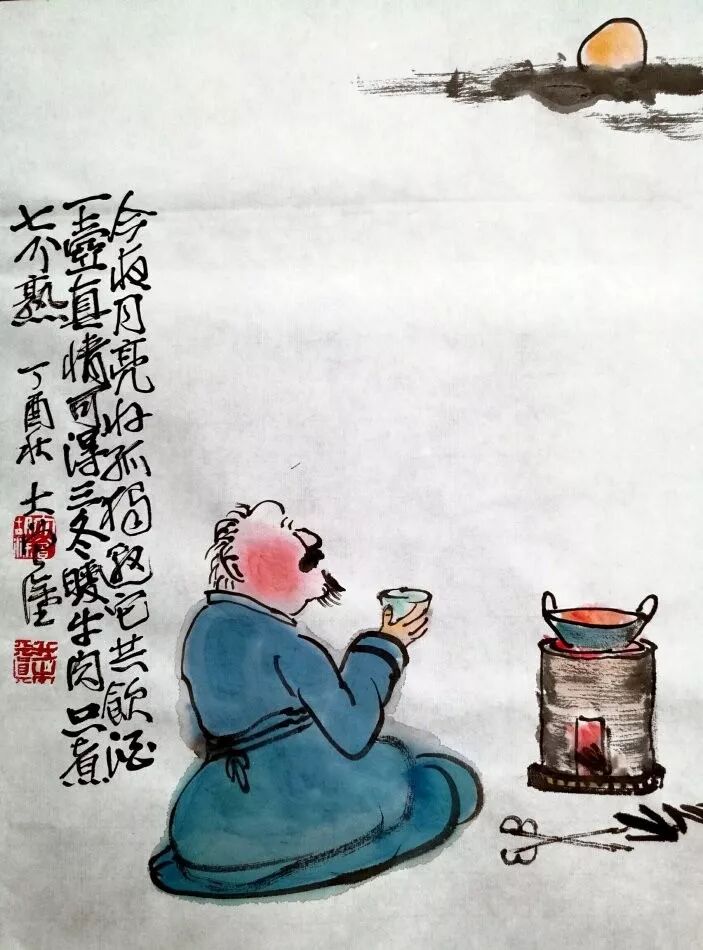 今夜月亮好孤独它共飲酒
一壺真情可得三冬暖牛肉只煮
七分熟 丁酉秋 大